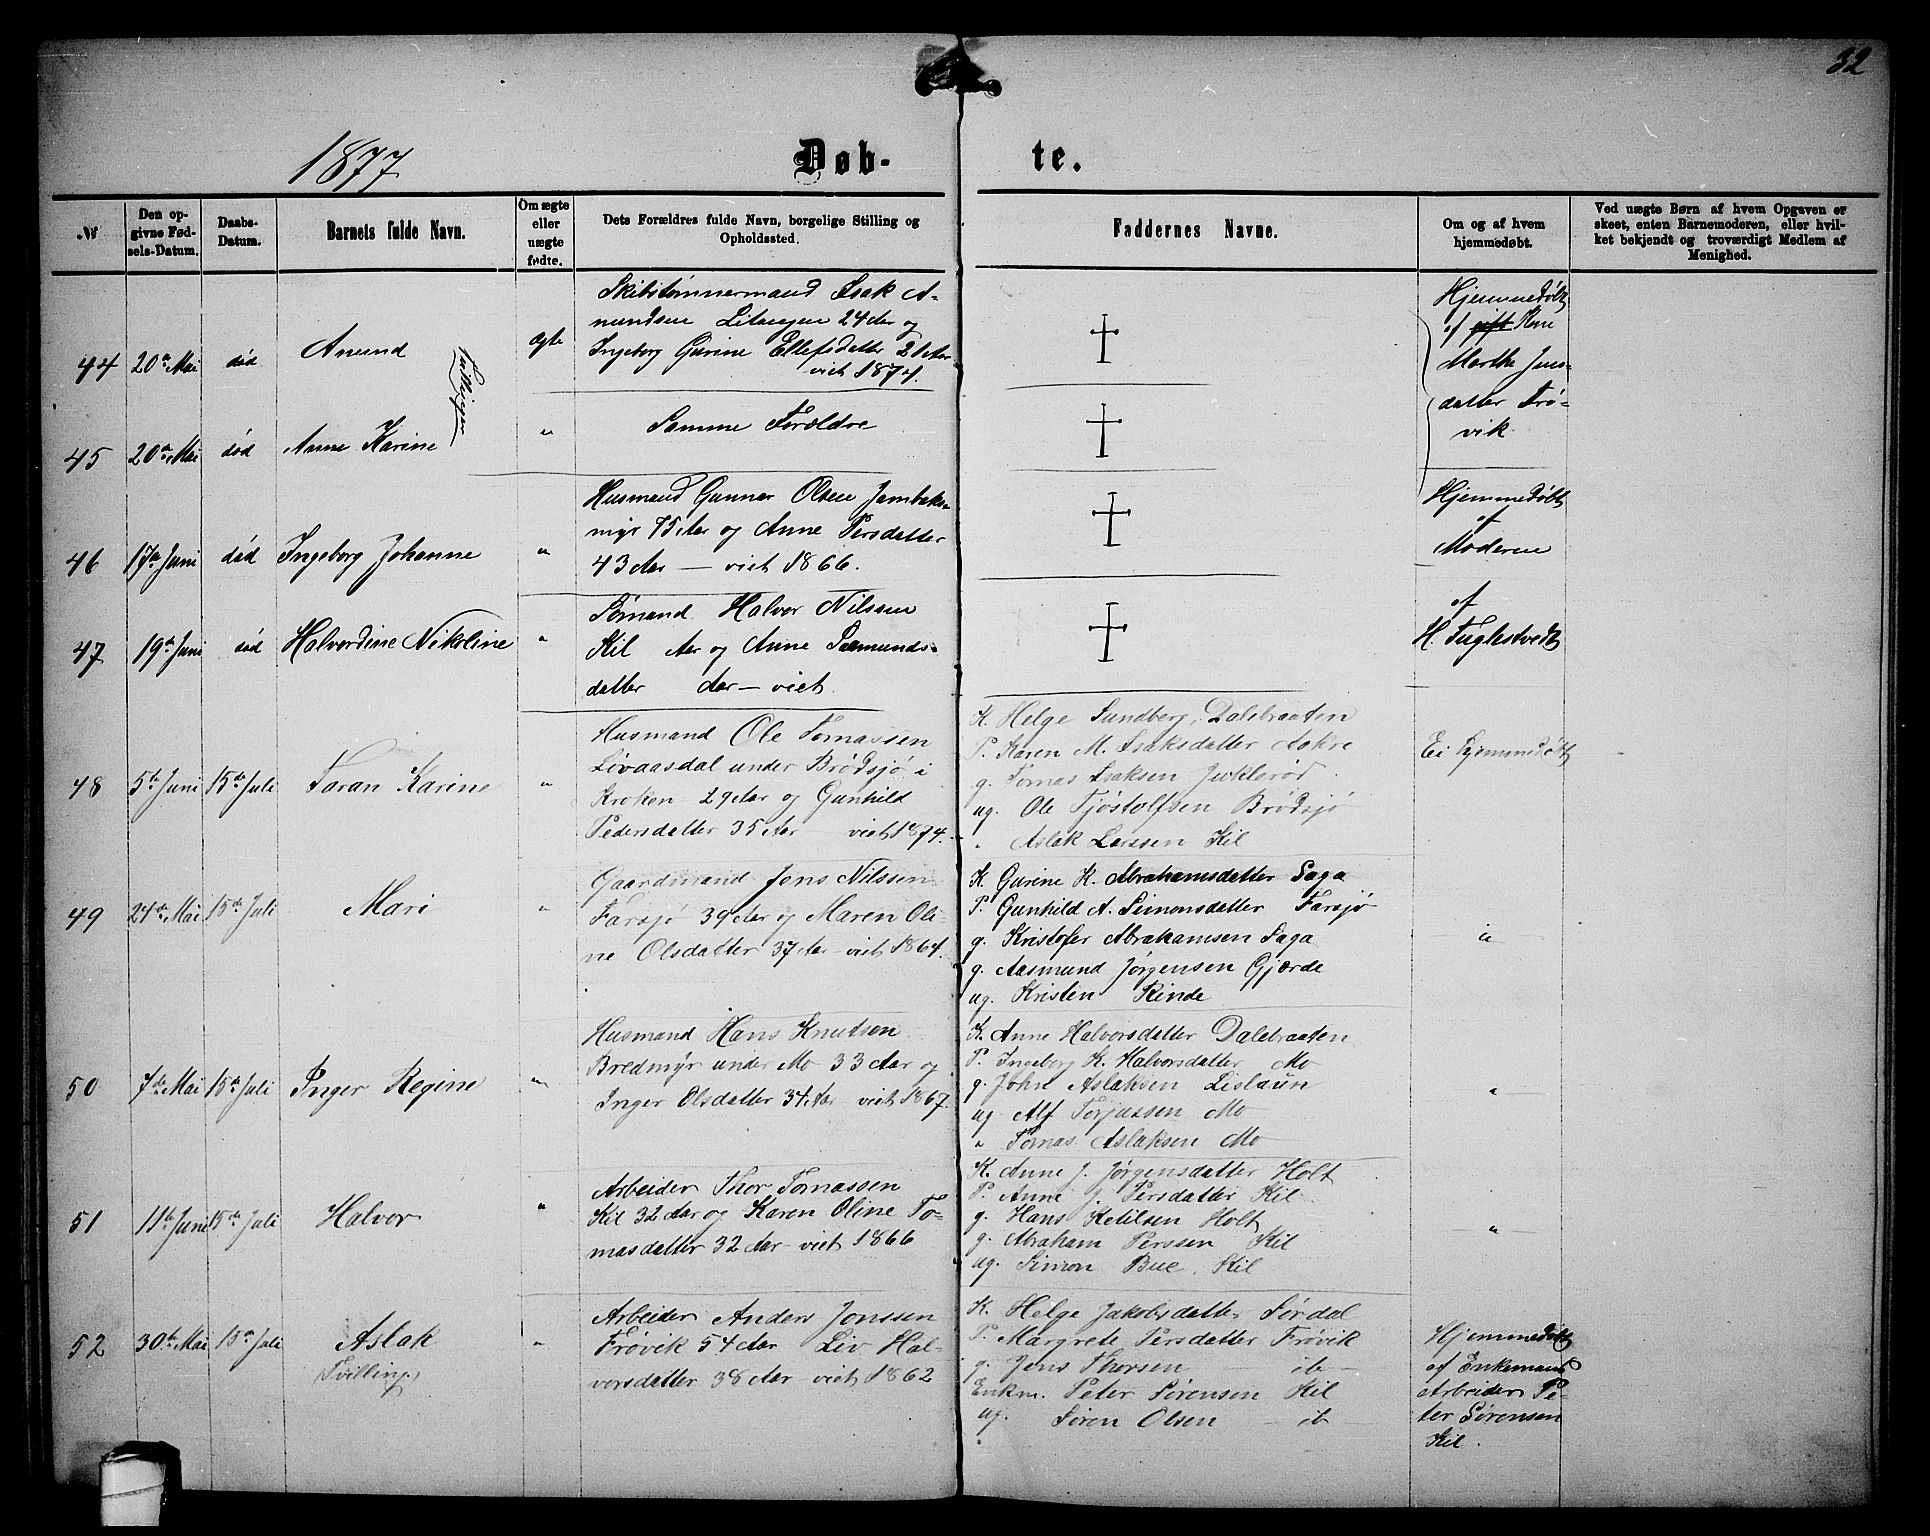 32
1877
Døb- te.
№
Den op-
givne Fød-
sels-Datum.
Daabs-
Datum.
Barnets fulde Navn.
Om ægte
eller
uægte
fødte.
Dets Forældres fulde Navn, borgelige Stilling og
Opholdssted.
Faddernes Navne.
Om og af hvem
hjemmedøbt.
Ved uægte Børn af hvem Opgaven er
skeet, enten Barnemoderen, eller hvil-
ket bekjendt og troværdigt Medlem af
Menighed.
44 20de Mai død Anund ægte
Tvillinger
Skibstømmermand Isak A-
nundsen 24 Aar og
Ingeborg Gurine Ellefsdatter 21 Aar
viet 1874.
Hjemmedøbt
af gift Kone
Marthe Jens-
datter Frø-
vik
45 20de Mai død Anne Karine "
Samme Forældre
46 17de Juni død Ingeborg Johanne "
Husmand Gunnar Olsen Jernbæks-
myr 75 Aar og Anne Persdatter
43 Aar — viet 1866.
Hjemmedøbt
af
Moderen
47 19de Juni død Halvordine Nikoline "
Sømand Halvor Nilssen
Kil Aar og Anne Sæmunds-
datter Aar — viet.
af
H. Fuglestvedt
48 5te Juni 15de Juli Taran Karine "
Husmand Ole Tomassen
Lövaasdal under Brødsjø i
Kroken 29 Aar og Gunhild
Pedersdatter 35 Aar — viet 1874.
K. Helge Sundberg, Dalebraaten
P. Karen M. Isaksdatter Aakre
g. Tomas Isaksen Juklerød
ug. Ole Tjøstolfsen Brødsjø
" Aslak Larssen Kil
Ei hjemmedøbt
49 24de Mai 15de Juli Mari "
Gaardmand Jens Nilssen
Farsjø 39 Aar og Maren Oli-
ne Olsdatter 37 Aar viet 1864.
K. Gurine K. Abrahamsdatter Saga
P. Gunhild A. Simonsdatter Farsjø
g. Kristofer Abrahamsen Saga
g. Aasmund Jørgensen Gjærde
ug. Kristen Rinde
"
50 7de Mai 15de Juli Inger Regine "
Husmand Hans Knutson
Bredmyr under Mo 33 Aar og
Inger Olsdatter 34 Aar viet 1867.
K. Anne Halvorsdatter Dalebraaten
P. Ingeborg K. Halvorsdatter Mo
g. John Aslaksen Lislaun
ug Alf Torjussen Mo
" Tomas Aslaksen Mo
"
51 11te Juni 15de Juli Halvor "
Arbeider Thor Tomassen
Kil 32 Aar og Karen Oline To-
masdatter 32 Aar — viet 1866
K. Anne J. Jørgensdatter Holt
P. Anne J. Persdatter Kil
g. Hans Ketilsen Holt
g. Abraham Perssen Kil
ug. Simon Bue, Kil
"
52 30te Mai 15de Juli Aslak "
Tvilling,
Arbeider Anders Jonssen
Frøvik 54 Aar Liv Hal-
vorsdatter 38 Aar — viet 1862
K. Helge Jakobsdatter Sørdal
P. Margrete Persdatter Frøvik
g. Jens Thorsen — ib —
Enkm. Peter Sørensen Kil
ug. Søren Olsen — ib —
Hjemmedøbt
af Enkemand
Arbeider Pe-
ter Sørensen
Kil.